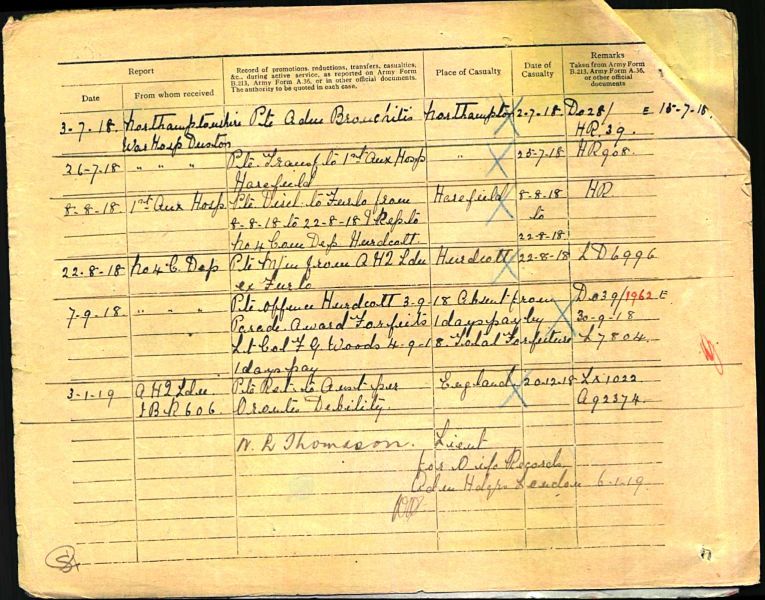 Report
Record of promotions, reductions, transfers, casualties,
&c., during active service, as reported on Army Form
B.213, Army Form A.36, or in other official documents.
The authority to be quoted in each case.
Place of Casualty
Date of
Casualty
Remarks
Taken from Army Form
B.213, Army Form A.36,
or other official
documents
Date
From whom received
3-7-18. Northamptonshire Pte Adm Bronchitis Northampton 2-7-18. Do28/ E 15-7-18.
War Hosp Duston HR.39.
26-7-18 " " " Pte Transf to 1st Aux Hosp " 25-7-18 HR908.
Harefield
8-8-18 1st Aux Hosp Pte Disch to Furlo from Harefield 8-8-18 HR
8-8-18 to 22-8-18 & Rep to to
No 4 Com Dep Hurdcott 22-8-18
22-8-18 No 4 C. Dep Pte M/in from AHQ Ldn Hurdcott 22-8-18 LD6996
ex Furlo
7-9-18. " " " Pte offence Hurdcott 3-9-18 Absent from Do39/1962 E
Parade. Award Forfeits 1 days pay by 30-9-18
Lt Col F G Woods 4-9-18 Total Forfeiture L7804.
1 days pay
3-1-19 AHQ Ldn Pte Ret. to Aust per England 20-12-18 LR1022
IBR606. Orontes Debility. A92374.
W. R Thomason. Lieut
for O i/c Records
Adm Hdqrs London 6-1-19